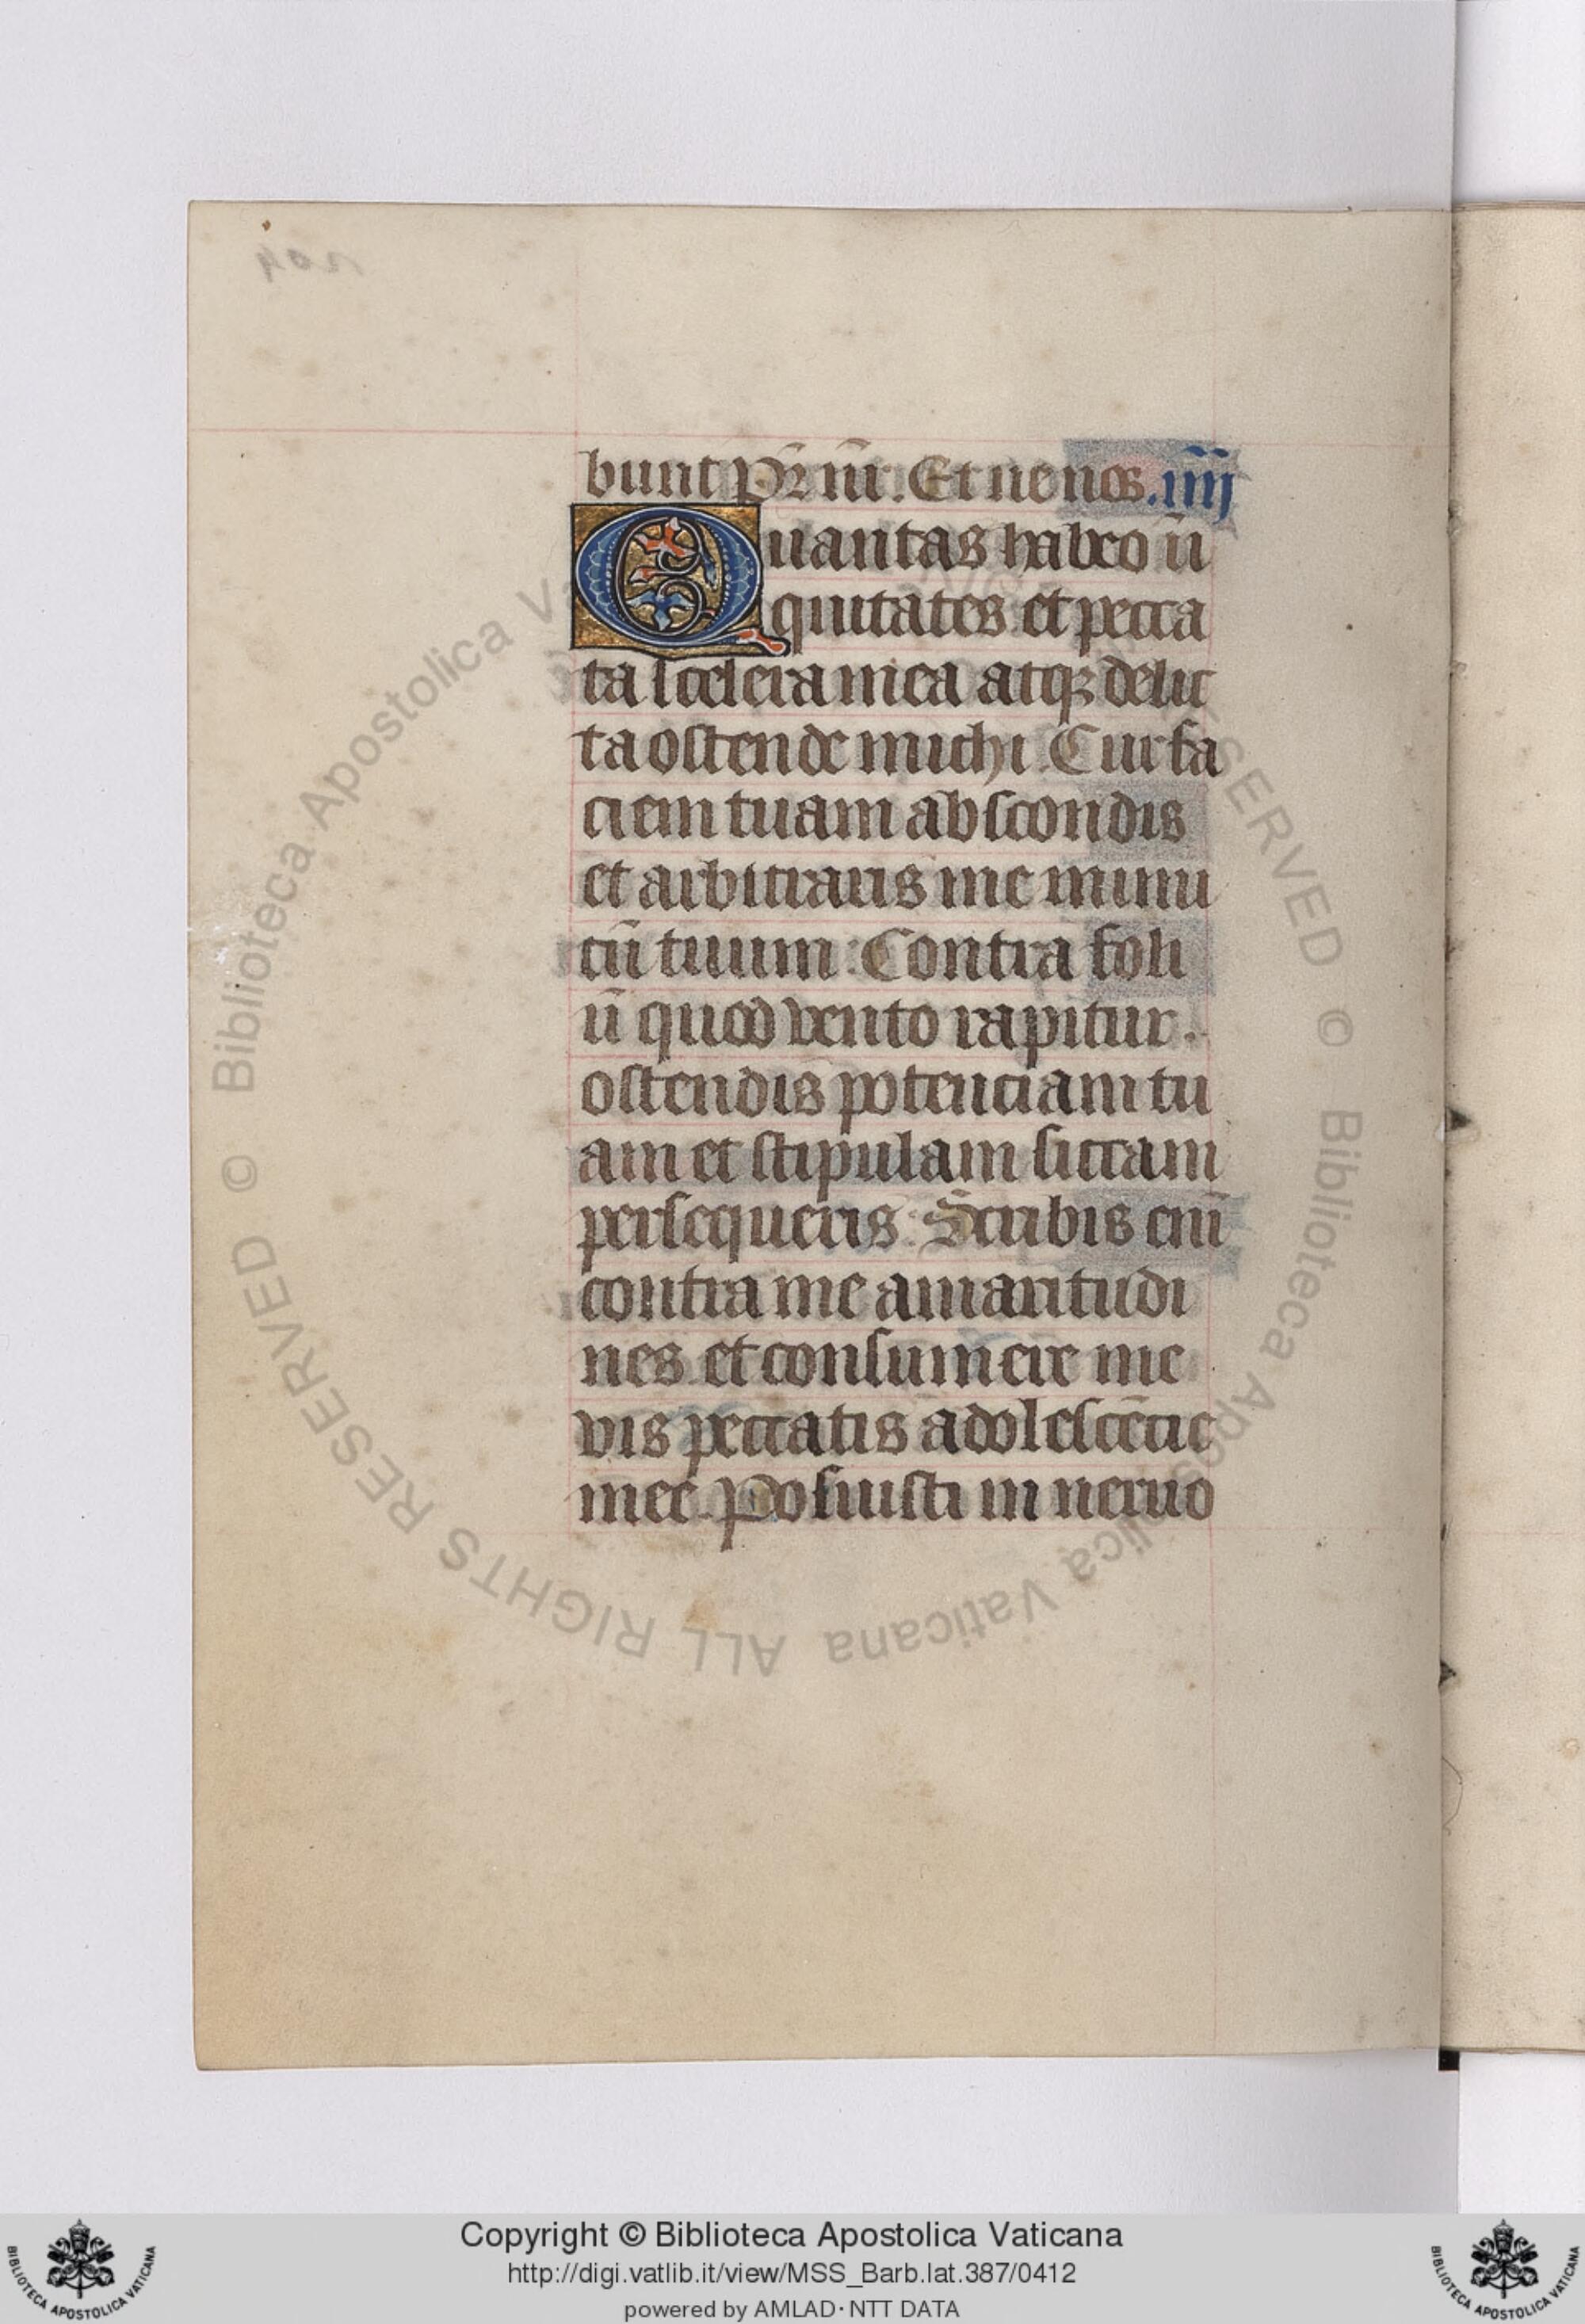 bunt Pr̄ nr̄. Et ne nos. iiij
Quantas habeo in̄
quitates et pecca
ta scelera mea atqꝫ delic
ta ostende michi. Cur fa
ciem tuam abscondis
et arbitraris me inimi
cū tuum: Contra foli
ū quod vento rapitur.
ostendis potenciam tu
am et stipulam siccam
persequeris: Scribis eni̅
contra me amaritudi
nes et consumere me
vis peccatis adolescēcie
mee. Posuisti in neruo
© Biblioteca Apostolica Vaticana ALL RIGHTS RESERVED © Biblioteca Apostolica Vaticana ALL RIGHTS RESERVED
Copyright © Biblioteca Apostolica Vaticana
http://digi.vatlib.it/view/MSS_Barb.lat.387/0412
powered by AMLAD·NTT DATA
BIBLIOTECA APOSTOLICA VATICANA
BIBLIOTECA APOSTOLICA VATICANA